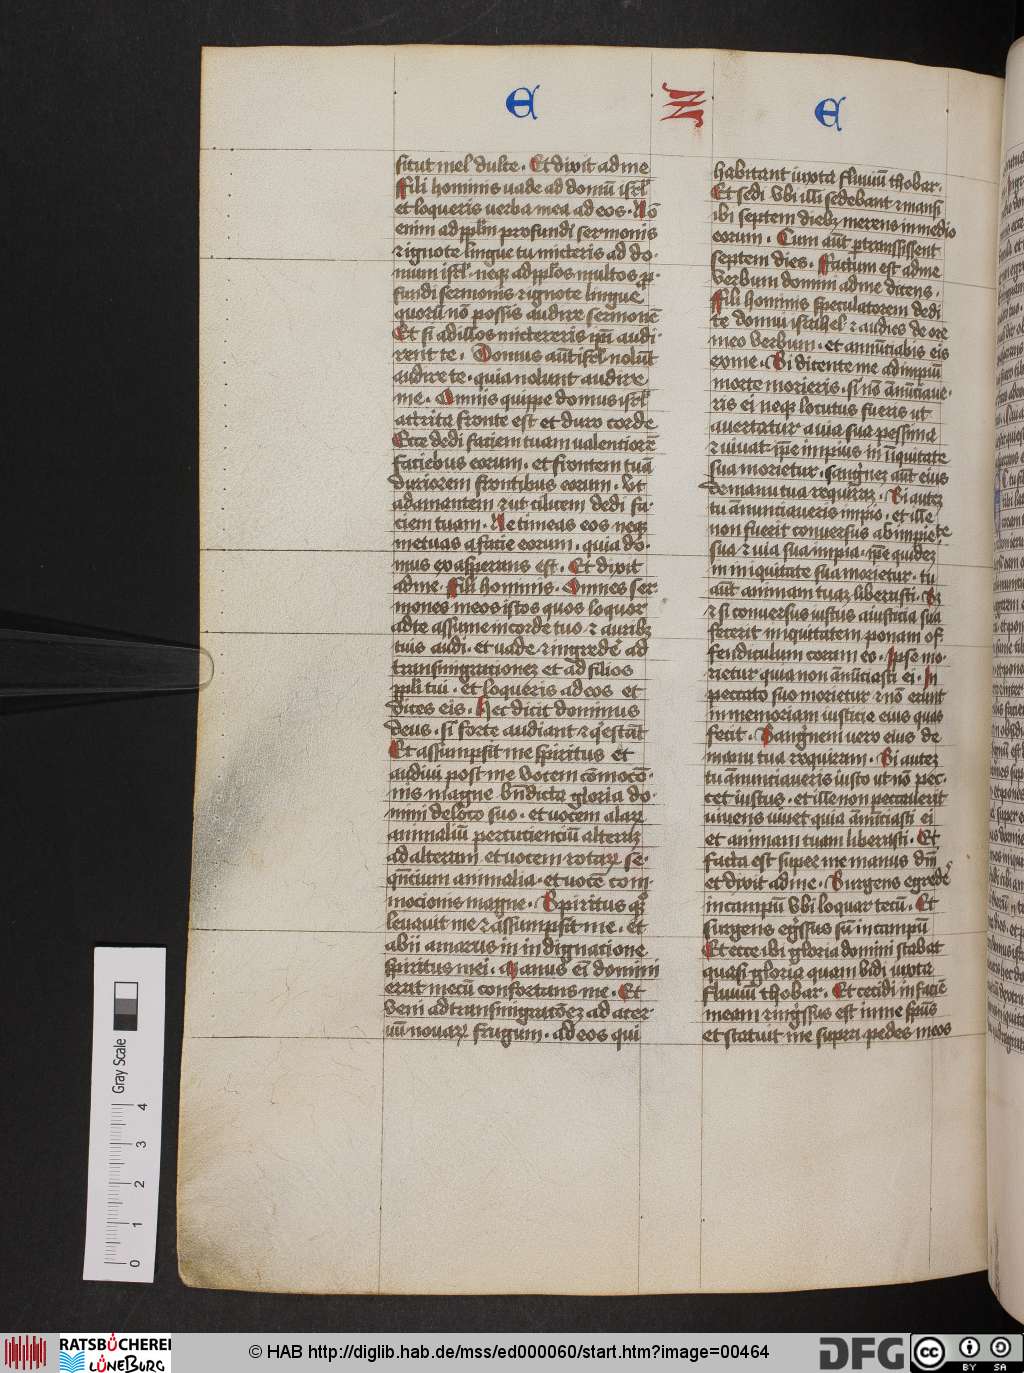 E Z E
sicut mel dulce. Et dixit ad me
Fili hominis uade ad domū isrl̄
et loqueris uerba mea ad eos. Nō
enim ad pplm̄ profundi sermonis
et ignote lingue tu micteris ad do-
mum isrl̄. neqʒ ad pplōs multos p̱-
fundi sermonis et ignote lingue
quorū nō possis audire sermonē
Et si ad illos mictereris ip̄i audi-
rent te. Domus aūt isrl̄ nolūt
audire te. quia nolunt audire
me. Omnis quippe domus isrl̄
attrita fronte est et duro corde
Ecce dedi faciem tuam ualentiorē
faciebus eorum. et frontem tuā
duriorem frontibus eorum. Vt
adamantem et ut cilicem dedi fa-
ciem tuam. Ne timeas eos neqʒ
metuas a facie eorum. quia do-
mus exasperans est. Et dixit
ad me. Fili hominis. Omnes ser-
mones meos istos quos loquor
ad te assume in corde tuo. et auribʒ
tuis audi. et uade et ingredē ad
transmigrationeʒ et ad filios
ppli tui. et loqueris ad eos et
dices eis. Hec dicit dominus
deus. si forte audiant et q̇escāt
Et assumpsit me spiritus et
audiui post me vocem cōmocō-
nis magne bn̄dicta gloria do-
mini de loco suo. et uocem alaꝝ
animaliū percutienciū alteraʒ
ad alteram et uocem rotaꝝ se-
qn̄cium animalia. et uocē com-
mocionis magne. Spiritus qʒ
leuauit me et assumpsit me. et
abii amarus in indignatione
spiritus mei. Manus ei̅ domini
erat mecū confortans me. Et
veni ad transmigratōeʒ ad acer-
uū nouaꝝ frugum. ad eos qui
habitant iuxta fluuiū chobar.
Et sedi vbi illi sedebant et mansi
ibi septem diebʒ merens in medio
eorum. Cum aūt ptransissent
septem dies. Factum est ad me
verbum domini ad me dicens.
Fili hominis speculatorem dedi
te domui israhel et audies de ore
meo verbum. et annūciabis eis
ex me. Si dicente me ad impiū
morte morieris. si nō anūciaue-
ris ei neqʒ locutus fueris ut
auertatur a uia sua pessima
et uiuat. ip̄e impius in iniquitate
sua morietur. sanguineʒ aūt eius
de manu tua requiraʒ. Si auteʒ
tu ānunciaueris impio. et ille
non fuerit conuersus ab impietate
sua et uia sua impia. ip̄e quideʒ
in iniquitate sua morietur. tu
aūt animam tuaʒ liberasti. Sʒ
et si conuersus iustus a iusticia sua
fecerit iniquitatem ponam of-
fendiculum coram eo. Ipse mo-
rietur quia non anūciasti ei. In
peccato suo morietur et nō erunt
in memoriam iusticie eius quas
fecit. Sangᷤnem uero eius de
manu tua requiram. Si auteʒ
tu ānunciaueris iusto ut nō pec-
cet iustus. et ille non peccauerit
viuens uiuet quia anūciasti ei
et animam tuam liberasti. Et
facta est super me manus dn̄i
et dixit ad me. Surgens egredē
in campū vbi loquar tecū. Et
surgens egressus sū in campū
Et ecce ibi gloria domini stabat
quasi gloria quam vidi iuxta
fluuiū chobar. Et cecidi in faciē
meam et ingressus est in me sp̄us
et statuit me super pedes meos
Gray Scale
0 1 2 3 4
RATSBÜCHEREI LÜNEBURG
© HAB http://diglib.hab.de/mss/ed000060/start.htm?image=00464
DFG
cc BY SA